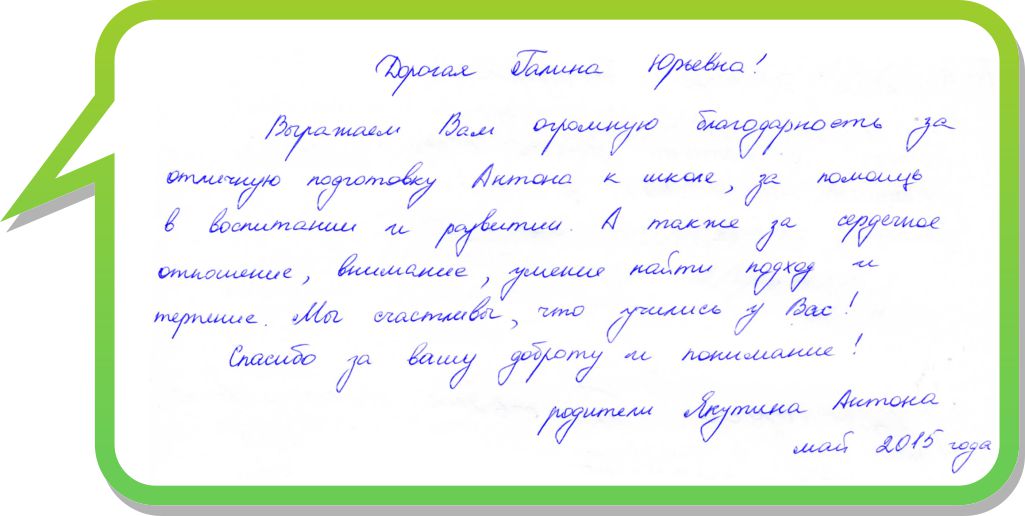 Дорогая Галина Юрьевна!
Выражаем Вам огромную благодарность за
отличную подготовку Антона к школе, за помощь
в воспитании и развитии. А также за сердечное
отношение, внимание, умение найти подход и
терпение. Мы счастливы, что учились у Вас!
Спасибо за вашу доброту и понимание!
родители Якутина Антона.
май 2015 года